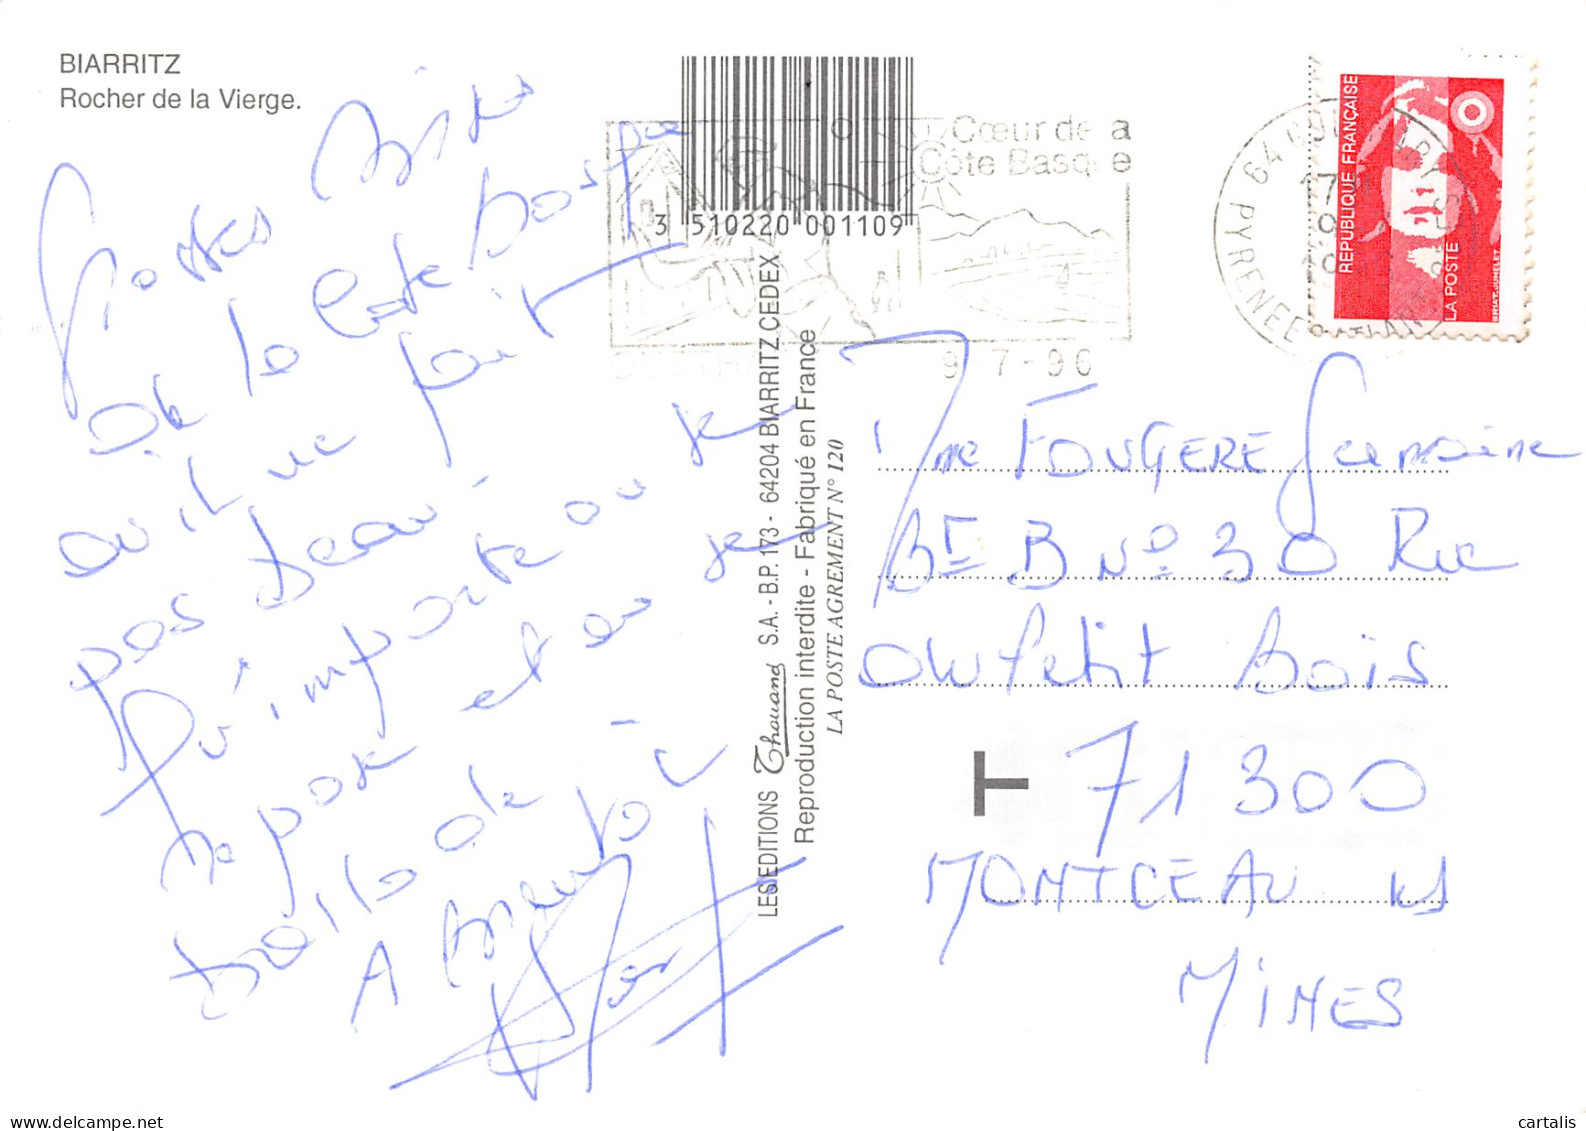 BIARRITZ
Rocher de la Vierge.
Grosses Bises
de la Cote basque
ou il ne fait
pas beau
qu'importe ou je
repose et ou je
A Bientôt
3 510220 001109
Cœur de la
Côte Basque
9-7-96
LES EDITIONS Thouand S.A. - B.P. 173 - 64204 BIARRITZ CEDEX
Reproduction interdite - Fabriqué en France
LA POSTE AGREMENT N° 120
64
PYRENEES ATLAN
REPUBLIQUE FRANÇAISE
LA POSTE
BRIAT-JUMELET
Mme FOUGERE Germaine
BT B N° 30 Rue
du Petit Bois
T 71300
MONTCEAU LES
MINES
cartalis